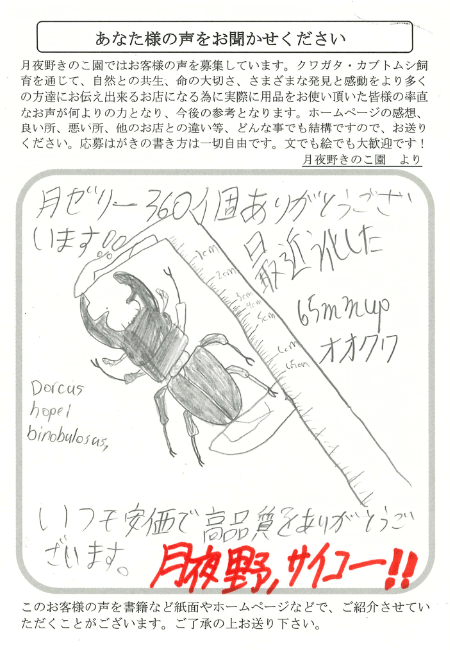 あなた様の声をお聞かせください
月夜野きのこ園ではお客様の声を募集しています。クワガタ・カブトムシ飼
育を通じて、自然との共生、命の大切さ、さまざまな発見と感動をより多く
の方達にお伝え出来るお店になる為に実際に用品をお使い頂いた皆様の率直
なお声が何よりの力となり、今後の参考となります。ホームページの感想、
良い所、悪い所、他のお店との違い等、どんな事でも結構ですので、お送り
ください。応募はがきの書き方は一切自由です。文でも絵でも大歓迎です！
月夜野きのこ園　より
月ゼリー360個ありがとうござい
います!!
最近羽化した
65mmup
オオクワ
1cm
2cm
3cm
4cm
5cm
6cm
7cm
Dorcus
hopei
binobulosus,
いつも安価で高品質をありがとうご
ざいます。
月夜野,サイコー!!
このお客様の声を書籍など紙面やホームページなどで、ご紹介させてい
ただくことがございます。ご了承の上お送り下さい。